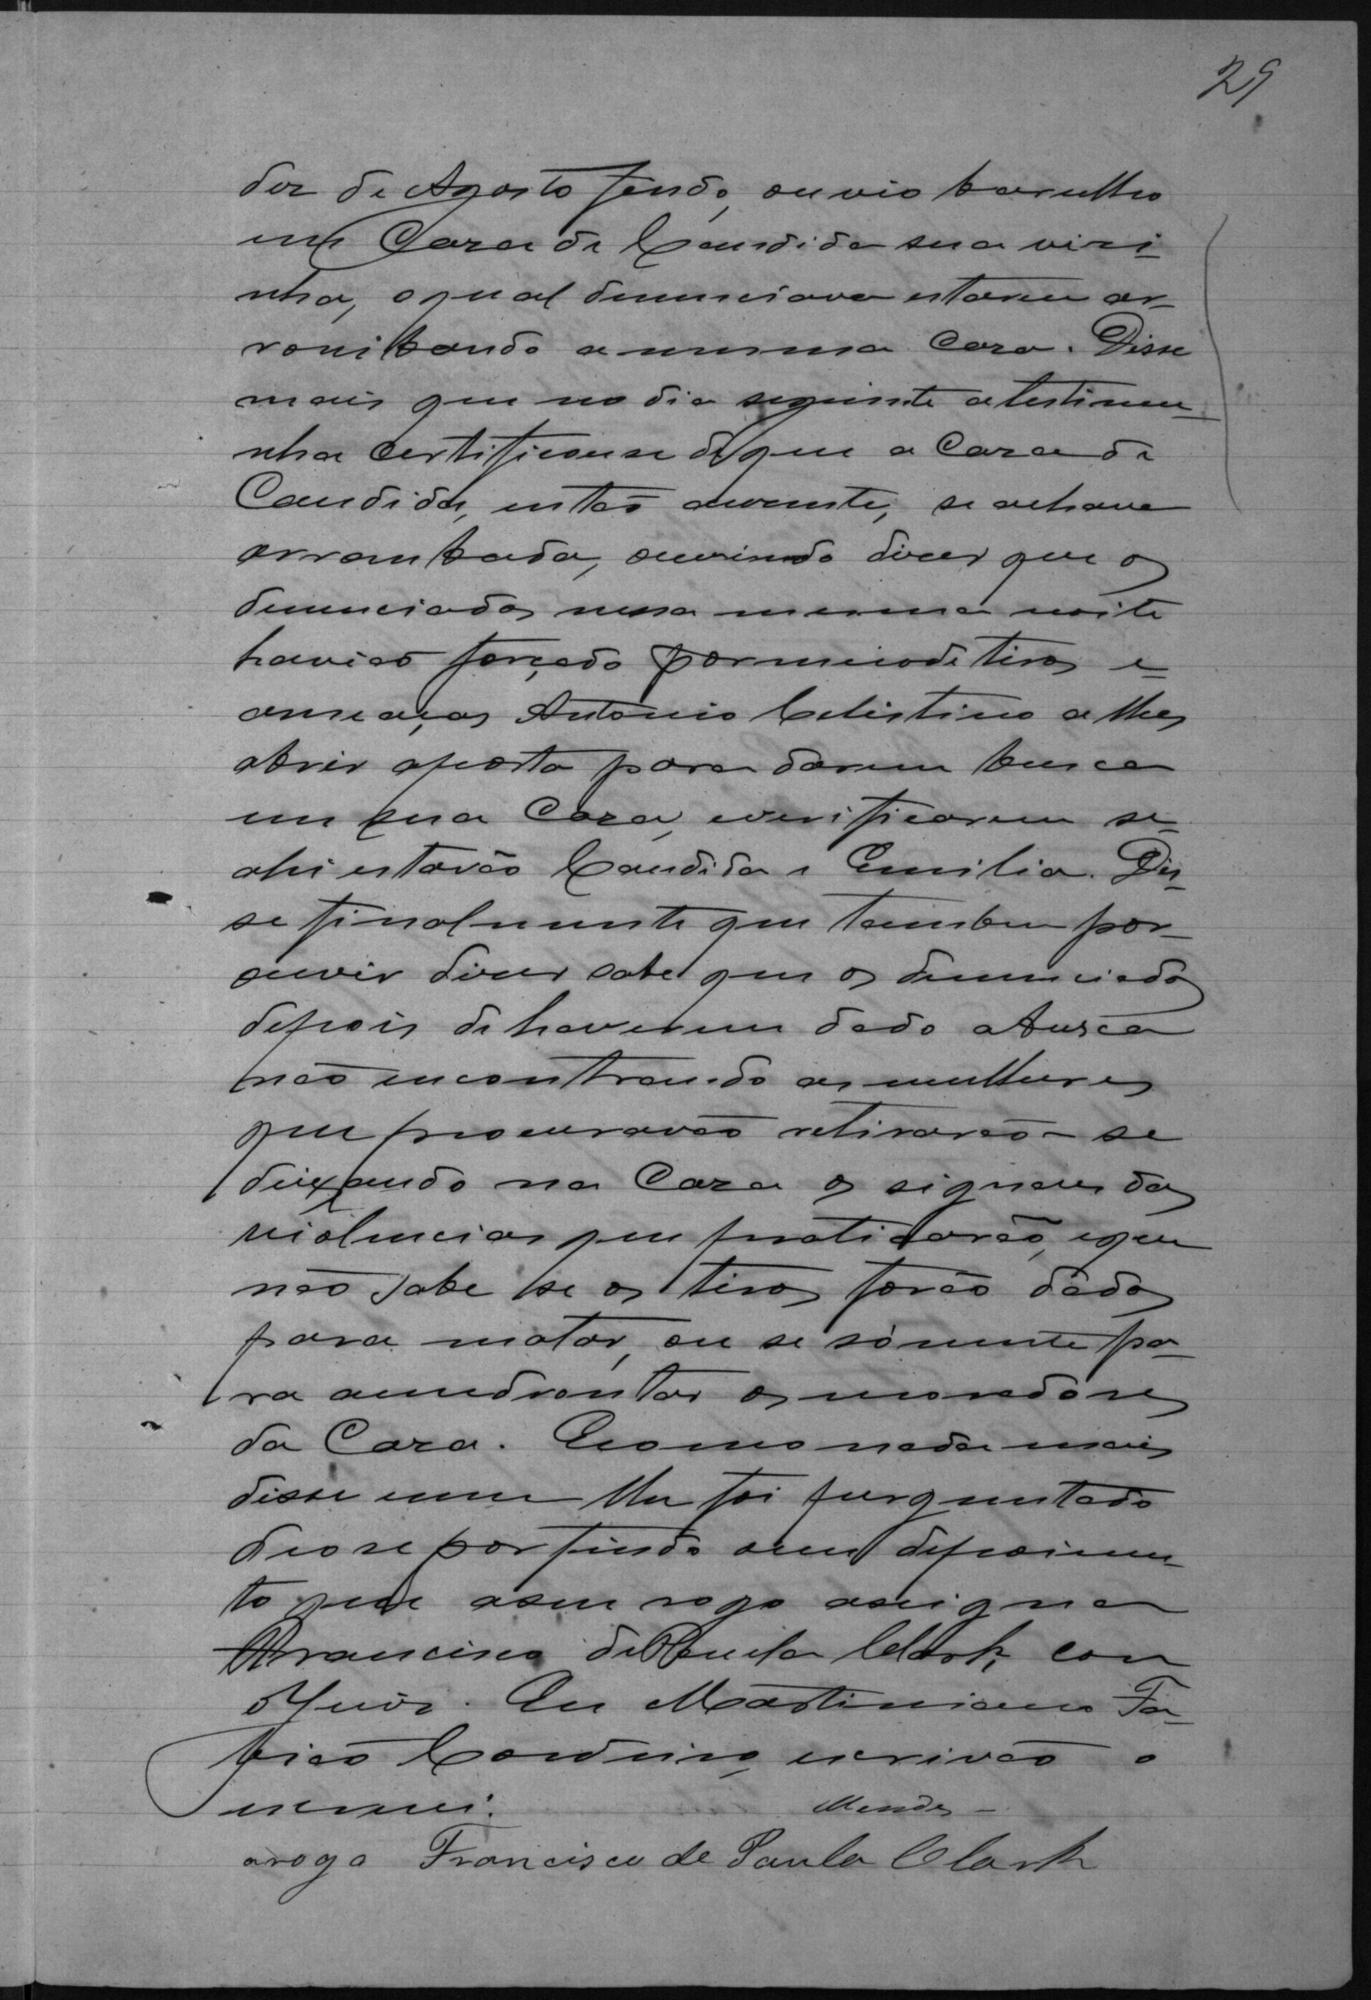 29
dez de Agosto findo, ouvio barulho
em Caza de Candida sua vizi-
nha, o qual denunciava estarem ar-
rombando a mesma Caza. Disse
mais que no dia seguinte a testimu-
nha certificouse de que a Caza de
Candida, então auzente, se achava
arrombada, ouvindo dizer que os
denunciados nessa mesma noite
havião forçado por meio de tiros e
ameaças Antonio Celistino a lhes
abrir aporta para darem busca
em sua Caza, e verificarem se
ahi estavão Candida e Emilia. Dis-
se finalmente que tambem por
ouvir dizer sabe que os denunciados
depois de haverem dado a busca
não encontrando as mulheres
que procuravão retirarão-se
deixando na Caza os signaes das
violencias que praticarão, e que
não sabe se os tiros forão dados
para matar, ou se sómente pa-
ra amedrontar os moradores
da Caza. E como nada mais
disse e nem lhe foi perguntado
deo se por findo o seu depoimen-
to que a seu rogo assigna
Francisco de Paula Clark, com
o Juis. Eu Martiniano Fa-
bião Cordeiro, escrivão o
escrevi.
Mendes
arogo Francisco de Paula Clark